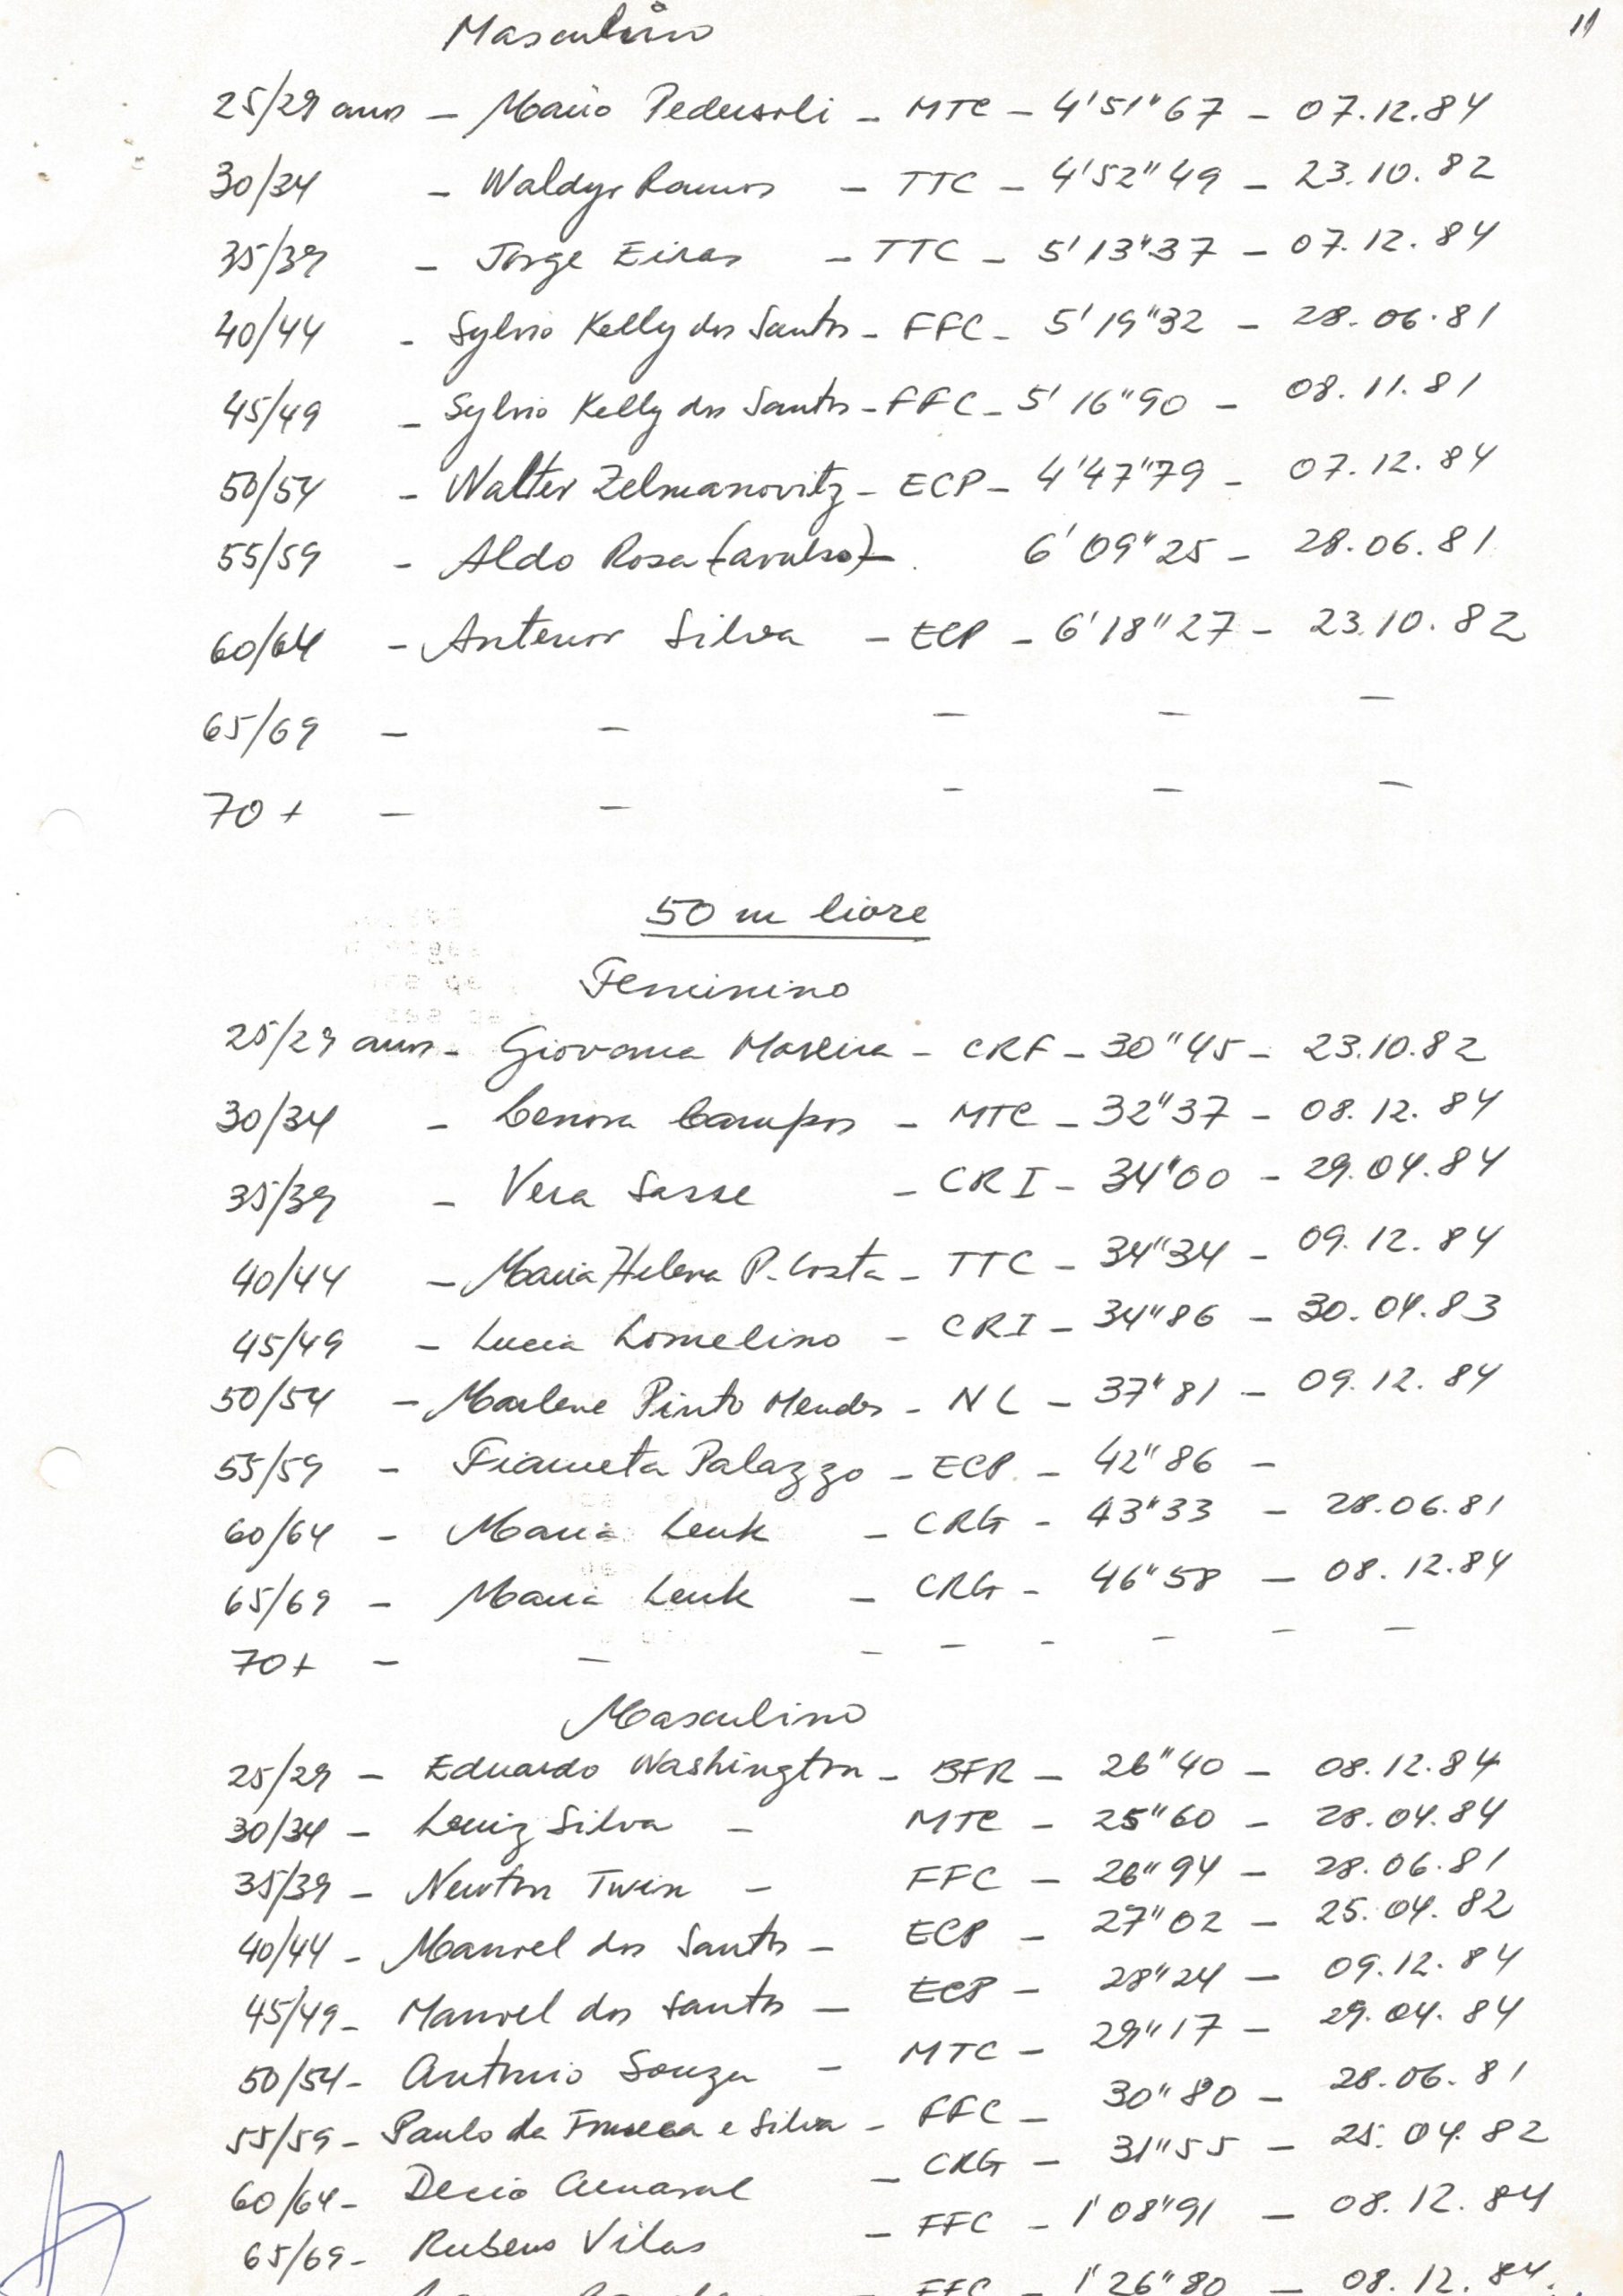 11
Masculino
25/29 anos - Mario Pedersoli - MTC - 4'51"67 - 07.12.84
30/34 - Waldyr Ramos - TTC - 4'52"49 - 23.10.82
35/39 - Jorge Eiras - TTC - 5'13"37 - 07.12.84
40/44 - Sylvio Kelly dos Santos - FFC - 5'19"32 - 28.06.81
45/49 - Sylvio Kelly dos Santos - FFC - 5'16"90 - 08.11.81
50/54 - Walter Zelmanovitz - ECP - 4'47"79 - 07.12.84
55/59 - Aldo Rosa (avulso) - 6'09"25 - 28.06.81
60/64 - Antenor Silva - ECP - 6'18"27 - 23.10.82
65/69 - - - - -
70+ - - - - -
50 m livre
Feminino
25/29 anos - Giovana Moreira - CRF - 30"45 - 23.10.82
30/34 - Cenira Campos - MTC - 32"37 - 08.12.84
35/39 - Vera Sasse - CRI - 34"00 - 29.04.84
40/44 - Maria Helena P. Costa - TTC - 34"34 - 09.12.84
45/49 - Lucia Lomelino - CRI - 34"86 - 30.04.83
50/54 - Marlene Pinto Mendes - NL - 37"81 - 09.12.84
55/59 - Fiameta Palazzo - ECP - 42"86 -
60/64 - Maria Lenk - CRG - 43"33 - 28.06.81
65/69 - Maria Lenk - CRG - 46"58 - 08.12.84
70+ - - - - - - - -
Masculino
25/29 - Eduardo Washington - BFR - 26"40 - 08.12.84
30/34 - Luiz Silva - MTC - 25"60 - 28.04.84
35/39 - Newton Twin - FFC - 26"94 - 28.06.81
40/44 - Manoel dos Santos - ECP - 27"02 - 25.04.82
45/49 - Manoel dos Santos - ECP - 28"24 - 09.12.84
50/54 - Antonio Souza - MTC - 29"17 - 29.04.84
55/59 - Paulo da Fonseca e Silva - FFC - 30"80 - 28.06.81
60/64 - Decio Amaral - CRG - 31"55 - 25.04.82
65/69 - Rubens Vilas - FFC - 1'08"91 - 08.12.84
FFC - 1'26"80 - 08.12.84